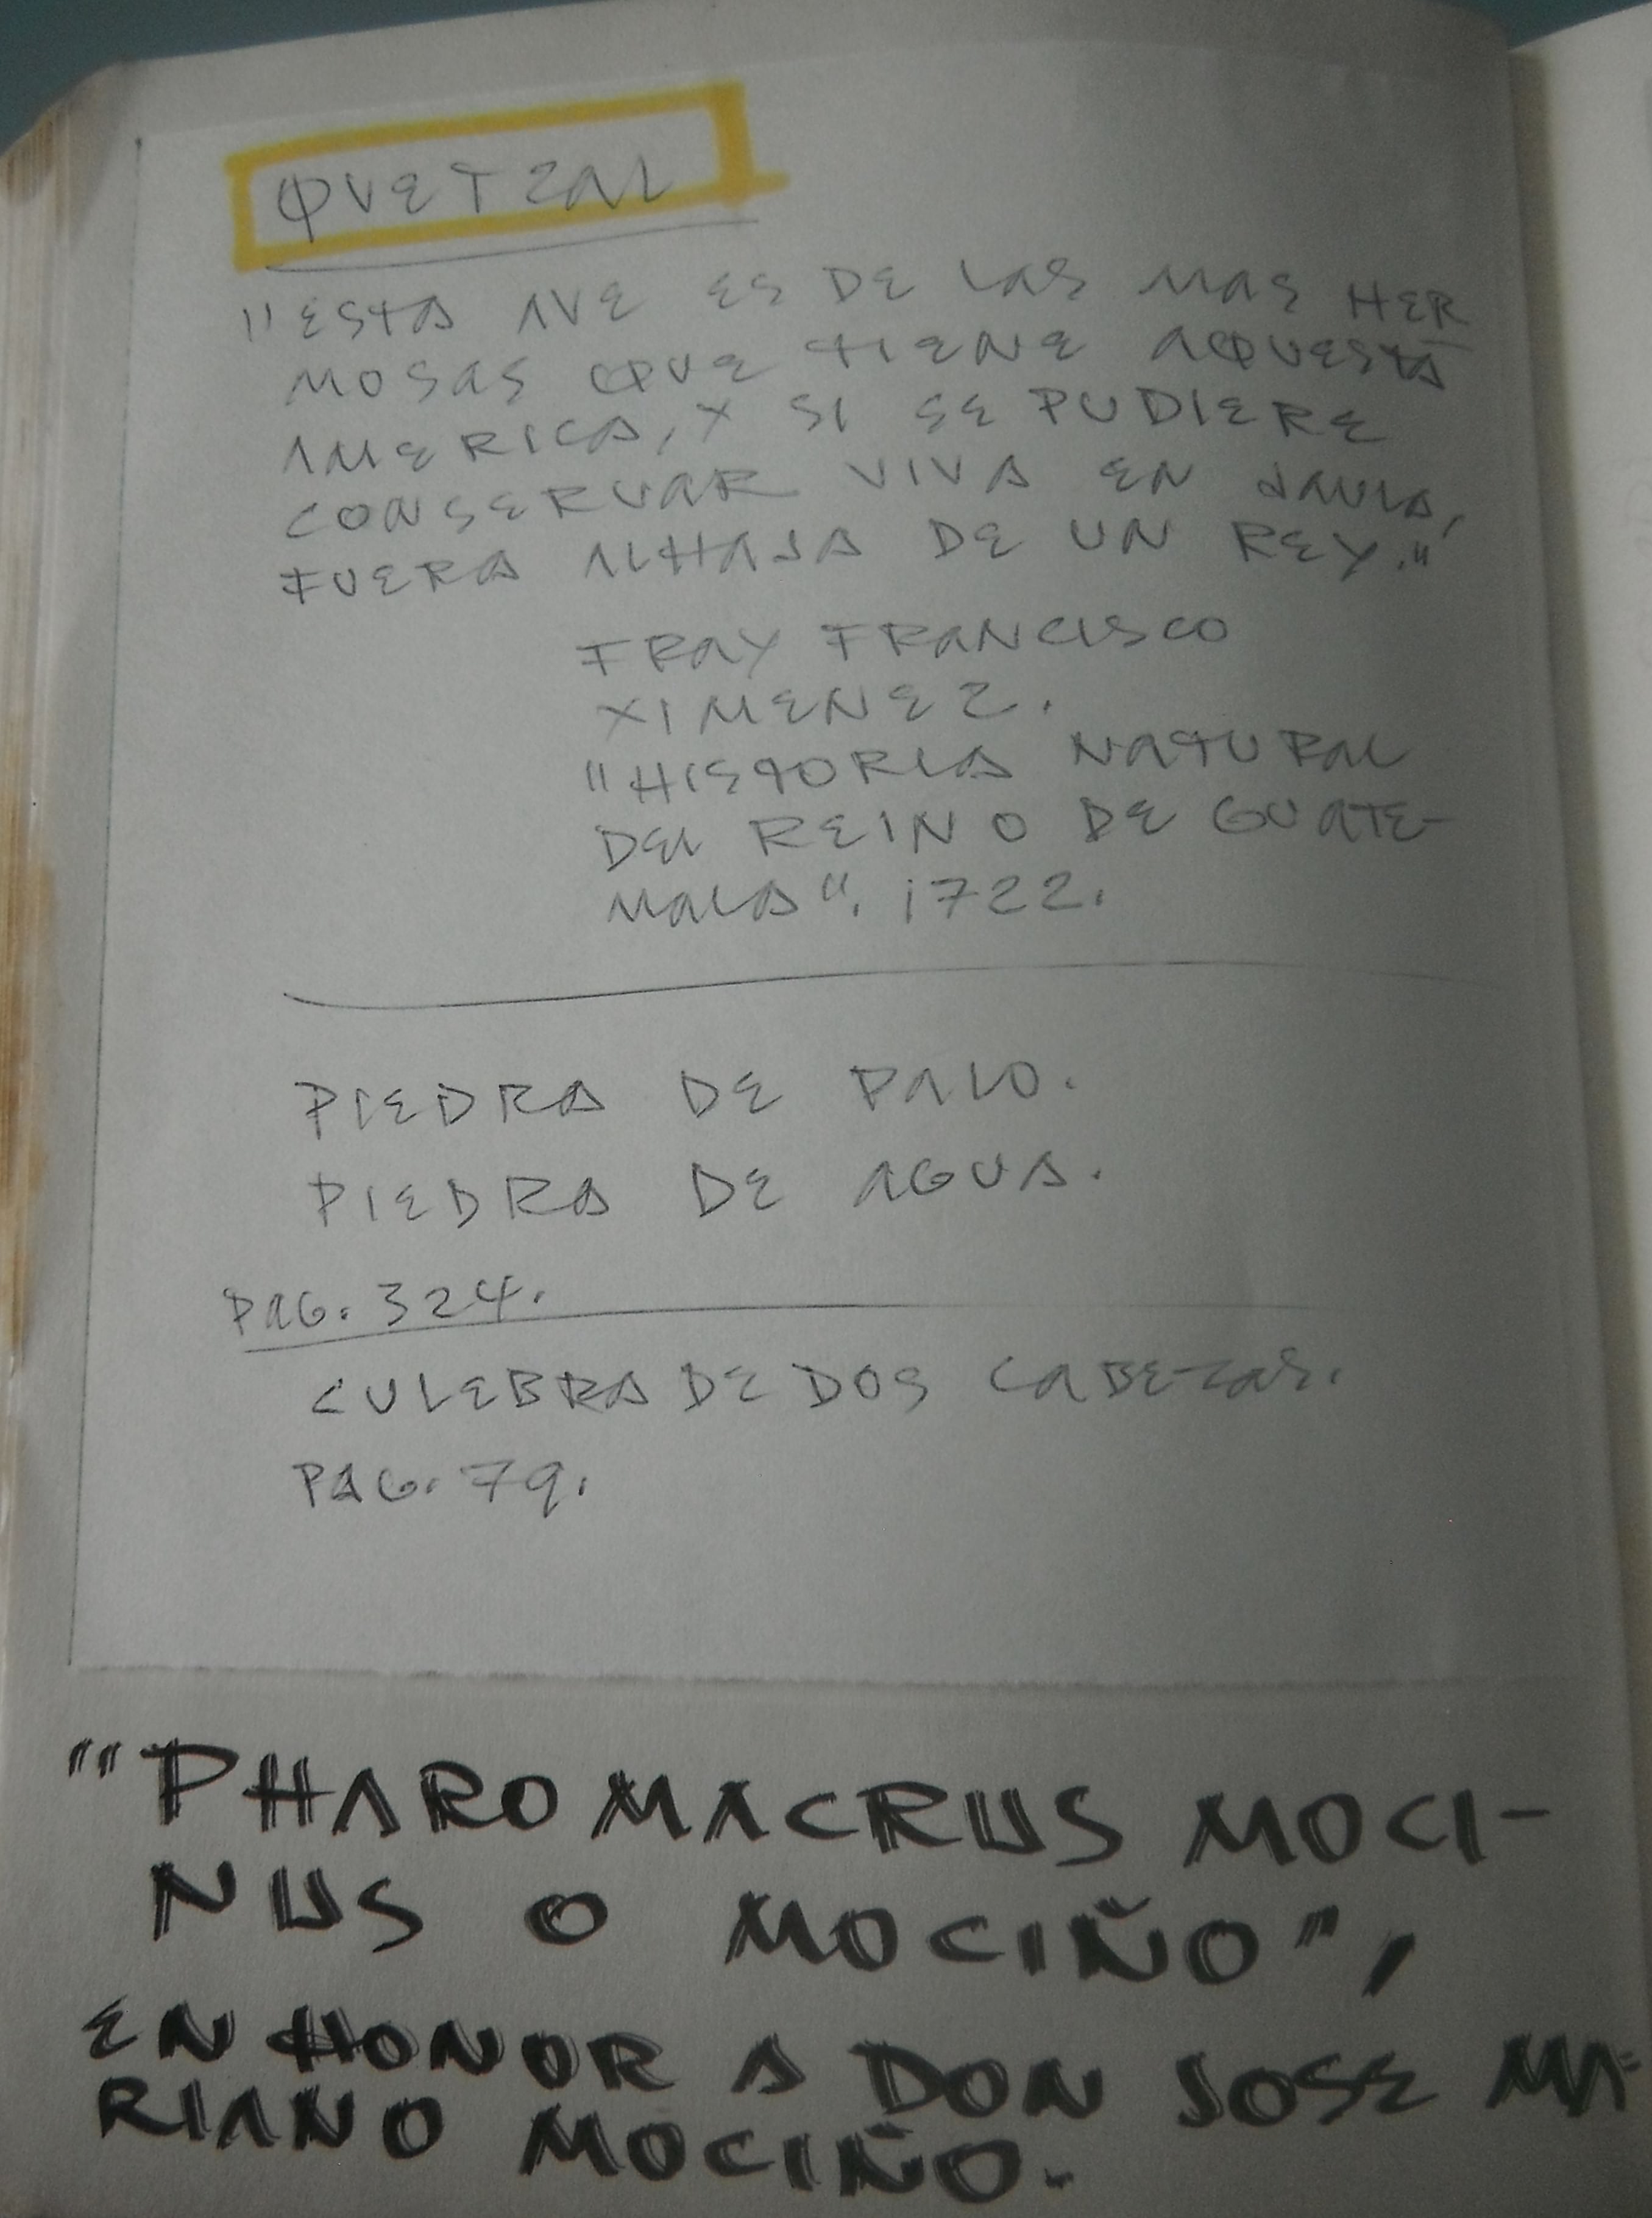 QUETZAL
"ESTA AVE ES DE LAS MAS HER
MOSAS QUE TIENE AQUESTA
AMERICA, Y SI SE PUDIERE
CONSERVAR VIVA EN JAULA,
FUERA ALHAJA DE UN REY."
FRAY FRANCISCO
XIMENEZ.
"HISTORIA NATURAL
DEL REINO DE GUATE-
MALA". 1722.
PIEDRA DE PALO.
PIEDRA DE AGUA.
PAG. 324.
CULEBRA DE DOS CABEZAS.
PAG. 79.
"PHAROMACRUS MOCI-
NUS O MOCIÑO",
EN HONOR A DON JOSE MA-
RIANO MOCIÑO.